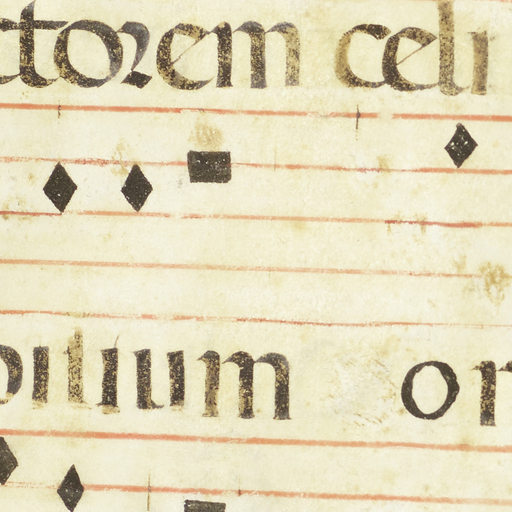 ctorem celi
bilium om